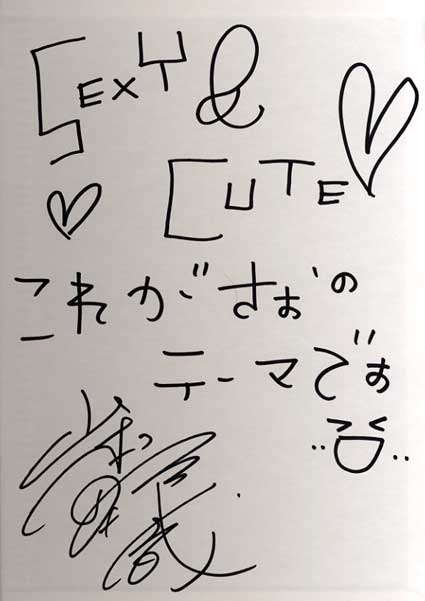 SEXY &
CUTE
これがさおの
テーマです